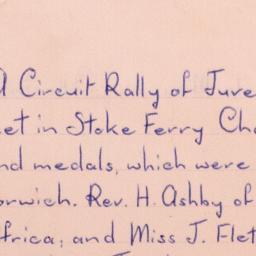 A Circuit Rally of Juve
et in Stoke Ferry Cha
nd medals, which were
orwich. Rev. H. Ashby of
frica; and Miss J. Flet